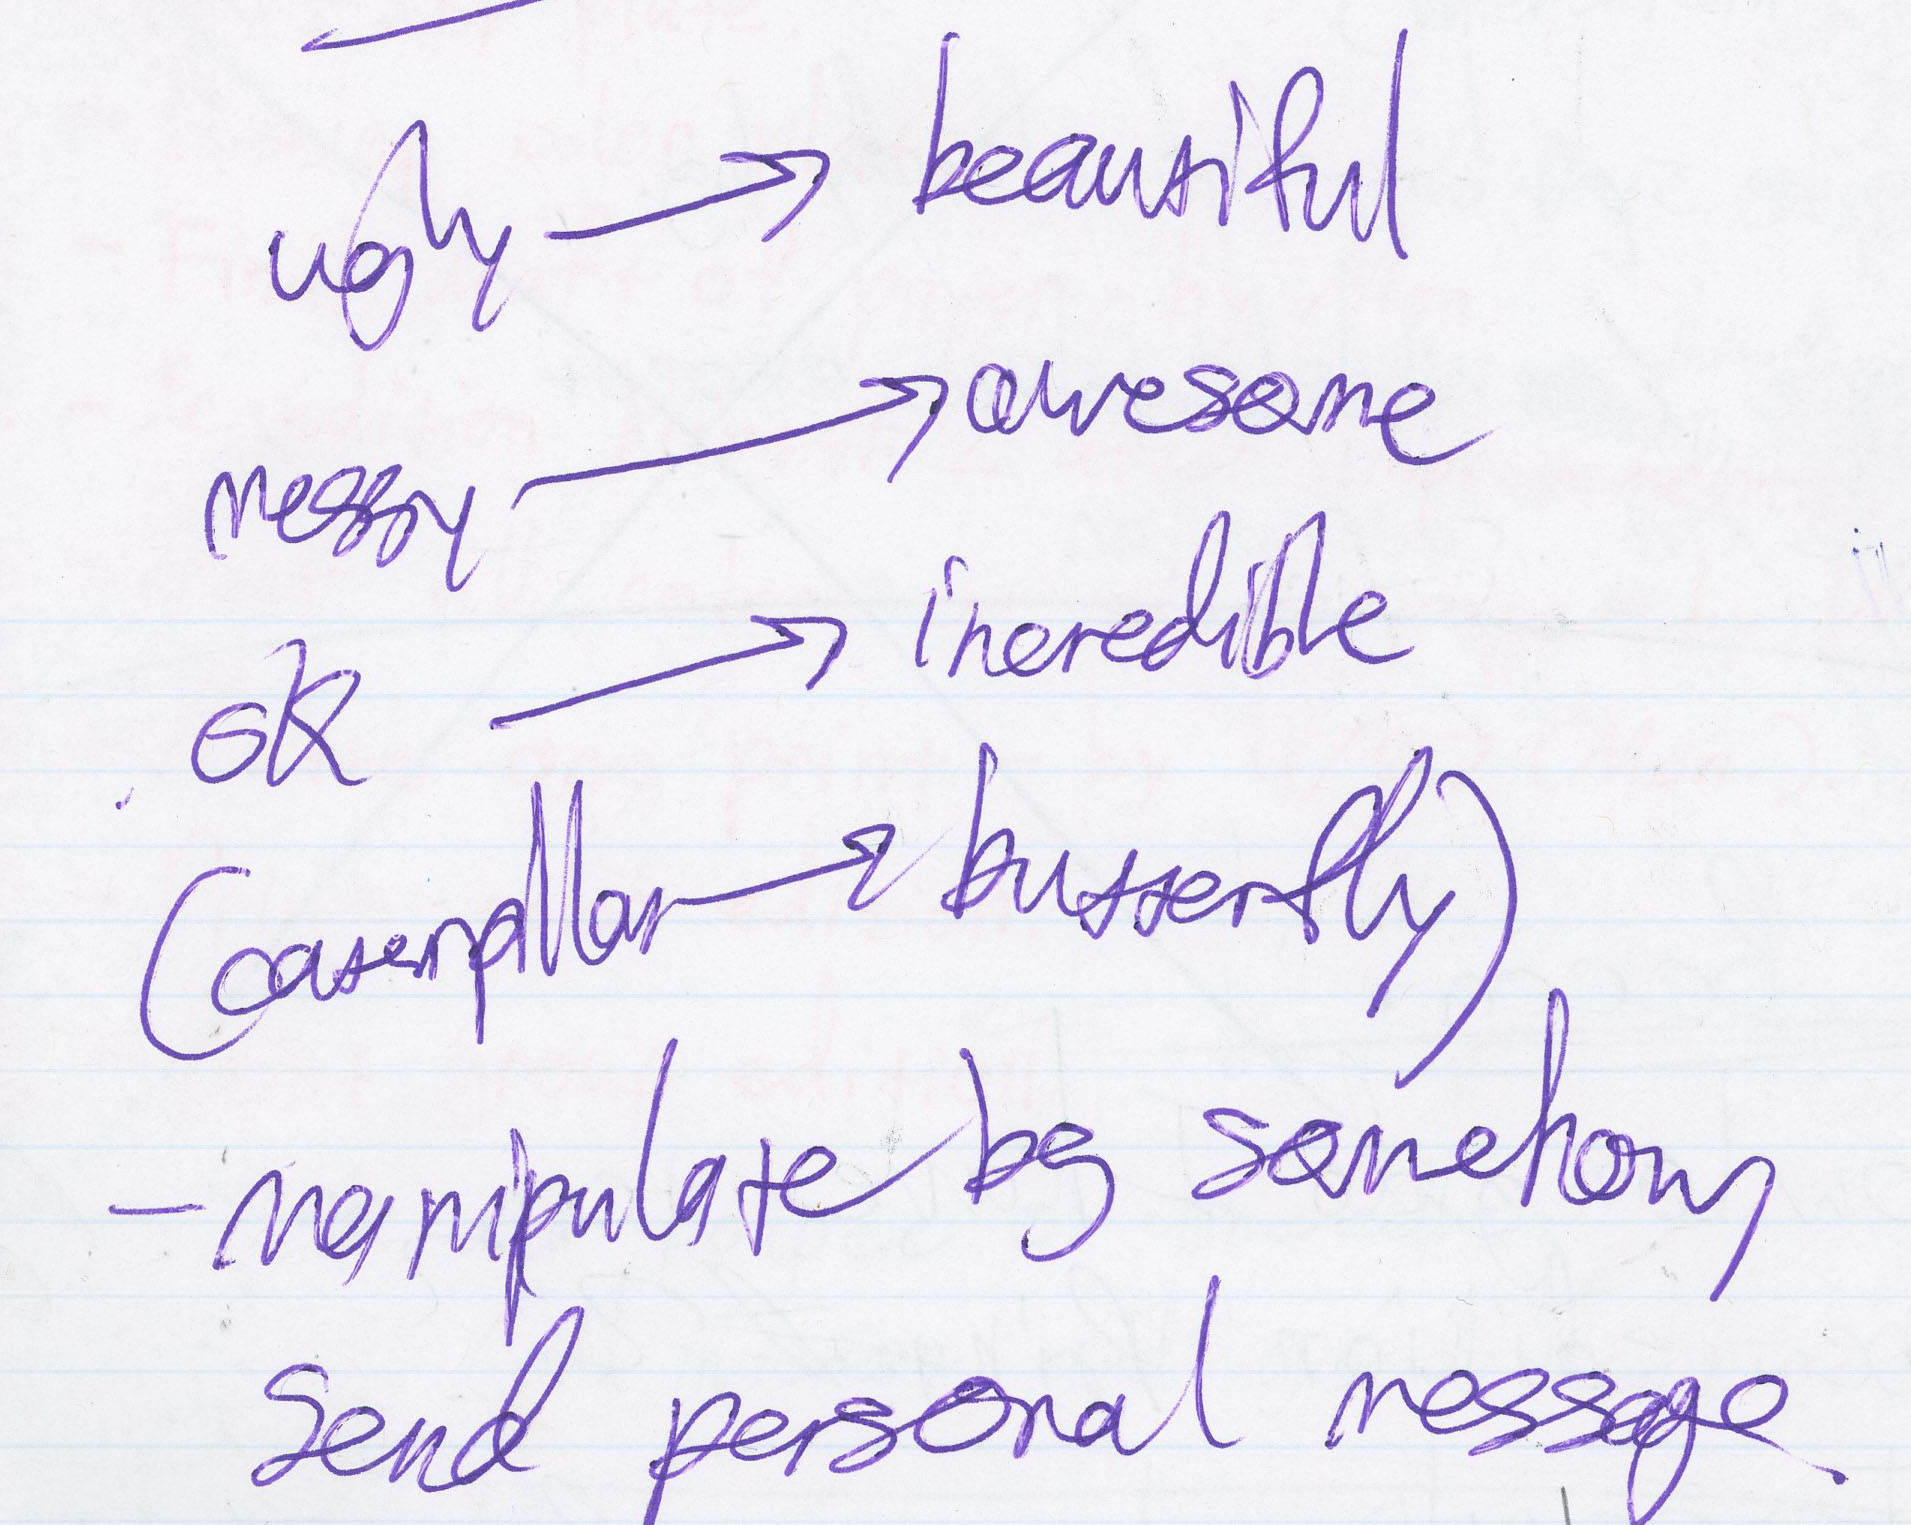 ugly → beautiful
messy → awesome
ok → incredible
(caterpillar → butterfly)
- manipulate bg somehow,
send personal message